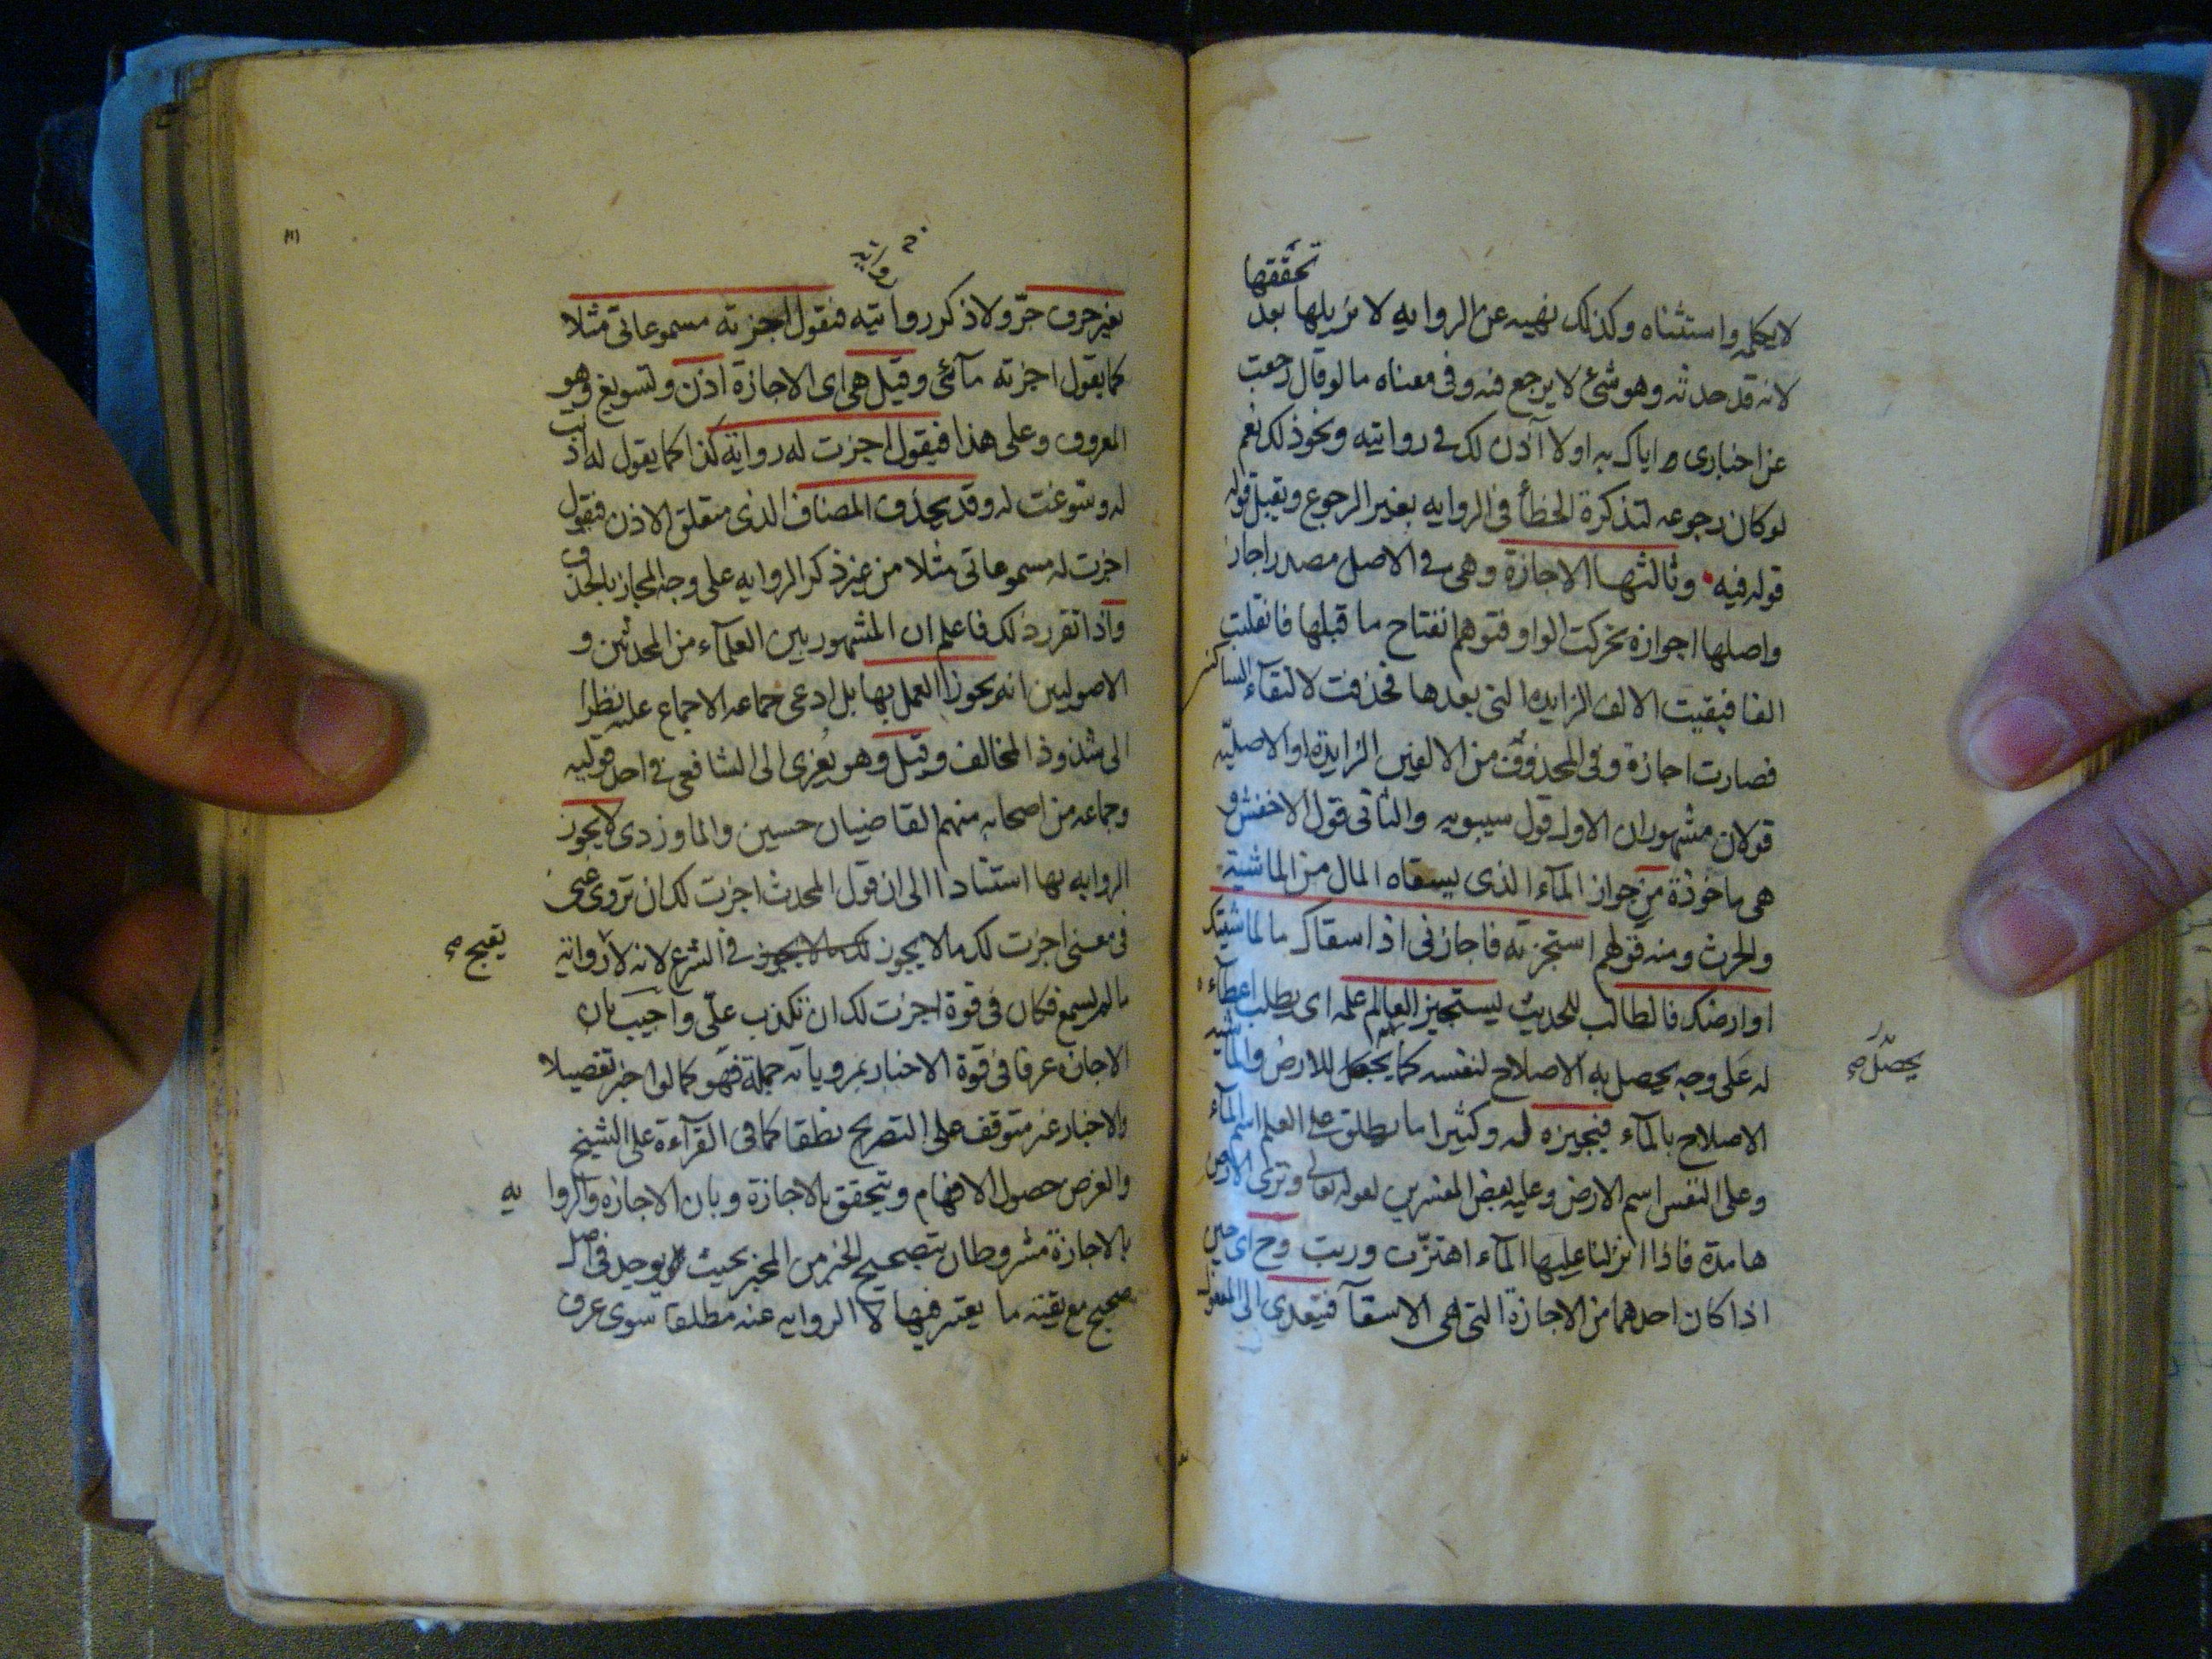 تحققها
لا يحكمه واستثناه وكذلك نهيه عن الروايه لا يزيلها بعد
لانه قد حدثه وهو شئ لا يرجع فيه وفى معناه ما لو قال رجعت
عن اخبارى اياك به او لا آذن لك فى روايته ونحو ذلك نعم
لو كان رجوعه لتذكرة الخطأ فى الروايه بغير الرجوع ويقبل قوله
قوله فيه وثالثها الاجازة وهى فى الاصل مصدر اجاز
واصلها اجوازه تحركت الواو فتوهم انفتاح ما قبلها فانقلبت
الفا فبقيت الالف الزايده التى بعدها فحذفت لالتقآء الساكنين
فصارت اجازة وفى المحذوف من الالفين الزايدة او الاصليّه
قولان مشهوران الاول قول سيبويه والثانى قول الاخفش و
هى ماخوذة من جواز المآء الذى يسقاه المال من الماشية
والحرث ومنه قولهم استجزته فاجازنى اذا اسقاك ما لماشيتك
او ارضك فالطالب للحديث يستجيز العالم علمه اى يطلب اعطآءه
له على وجه يحصل به الاصلاح لنفسه كما يحصل للارض والماشيه
يحصّل صح
الاصلاح بالمآء فيجيزه له وكثيرا ما يطلق على العلم اسم المآء
وعلى النفس اسم الارض وعليه بعض المفسرين لقوله تعالى وترى الارض
هامدة فاذا انزلنا عليها المآء اهتزت وربت وح اى حين
اذا كان احدهما من الاجازة التى هى الاسقآ فيتعدى الى المفعول
روايه خ
بغير حرف جرّ ولا ذكر روايته فنقول اجزته مسموعاتى مثلا
كما يقول اجزته مآئى وقيل هى اى الاجازة اذن وتسويغ وهو
المعروف وعلى هذا فيقول اجزت له رواية كذا كما يقول له اذنت
له وسوغت له وقد يحذف المضاف الذى متعلق الاذن فنقول
اجزت له مسموعاتى مثلا من غير ذكر الروايه على وجه المجاز بالحذف
واذا تقرر ذلك فاعلم ان المشهور بين العلمآء من المحدثين و
الاصوليين انه يجوز العمل بها بل ادعى جماعه الاجماع عليه نظرا
الى شذوذ المخالف وقيل وهو يُعزى الى الشافعى فى احد قوليه
وجماعه من اصحابه منهم القاضيان حسين والماوردى لا يجوز
الروايه بها استنادا الى ان قول المحدث اجزت لك ان تروى عنى
فى معنى اجزت لك ما لا يجوز لك ما لا يجوز فى الشرع لانه لا روايه
يبيح صح
ما لم يسمع فكان فى قوة اجزت لك ان تكذب علّى واجيب بان
الاجازه عرفا فى قوة الاخبار بمروياته جملة فهو كما لو اخبر تفصيلا
والاخبار غير متوقف على التصريح نطقا كما فى القرآءة على الشيخ
والغرض حصول الافهام ويتحقق بالاجازة وبان الاجازه والروايه
بالاجازة مشروطان بتصحيح الخبر من المخبر بحيث يوجد فى اصل
صحيح مع بقيّه ما يعتبر فيها لا الروايه عنه مطلقا سوى عرف